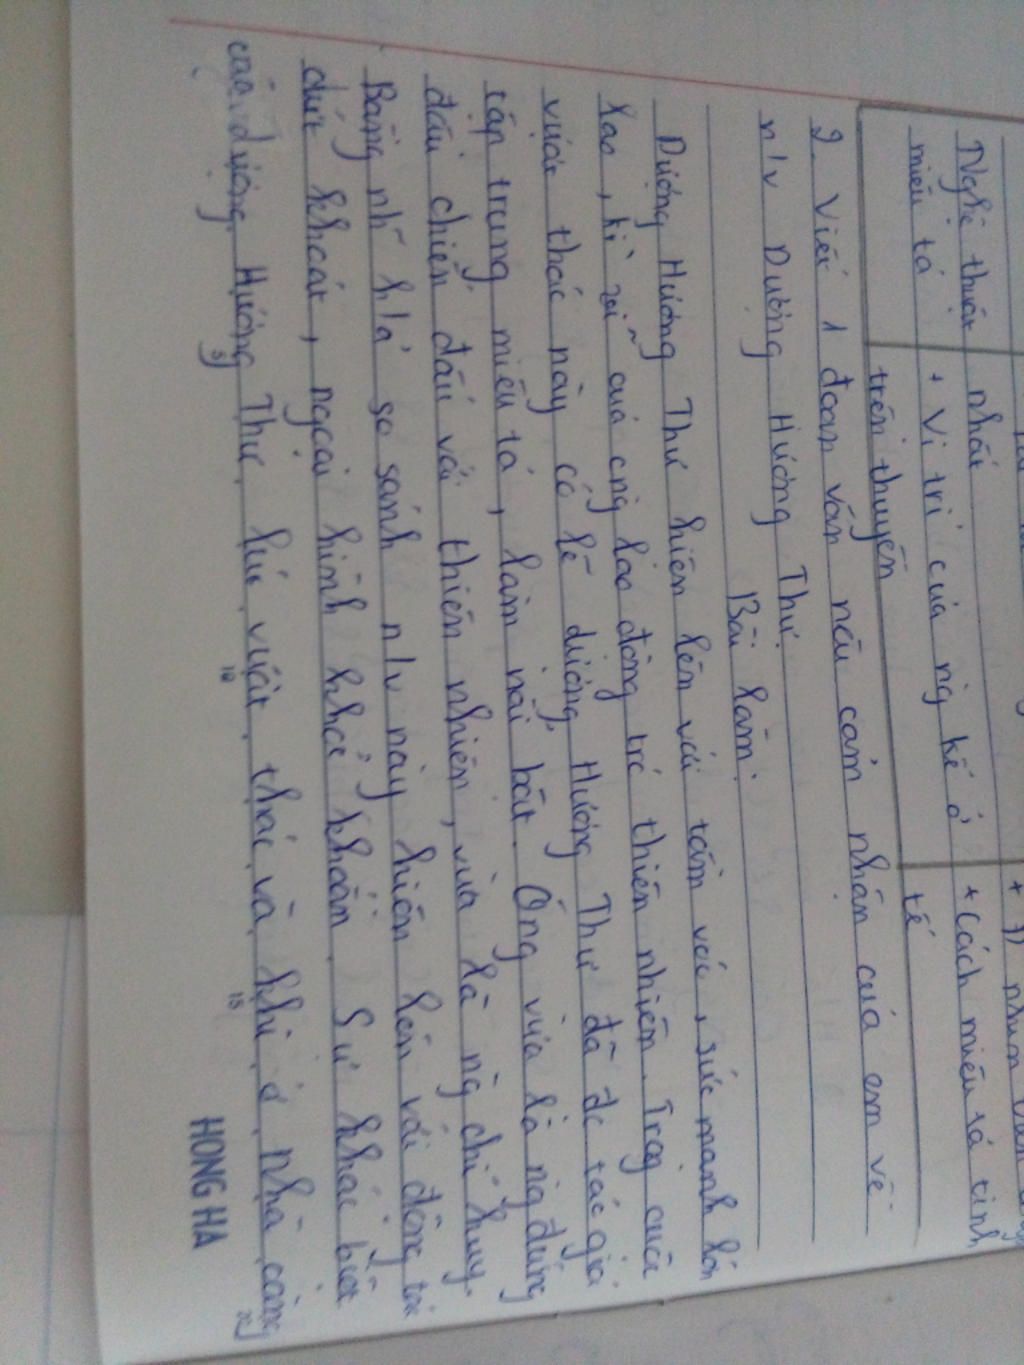 Nghệ thuật nhất
miêu tả + Vị trí của ng kể ở + Cách miêu tả tinh
trên thuyền tế
2. Viết 1 đoạn văn nêu cảm nhận của em về
n/v Dượng Hương Thư.
Bài làm:
Dượng Hương Thư hiện lên với tầm vóc, sức mạnh lớn
lao, kì vĩ của cng lao động trc thiên nhiên. Trog cuộc
vượt thác này có lẽ dượng Hương Thư đã đc tác giả
tập trung miêu tả, làm nổi bật. Ông vừa là ng đứng
đầu chiến đấu với thiên nhiên, vừa là ng chỉ huy.
Bằng nh~ h/ả so sánh n/v này hiện lên với động tác
dứt khoát, ngoại hình khỏe khoắn. Sự khác biệt
của dượng Hương Thư lúc vượt thác và khi ở nhà càng
5 10 15 20
HONG HA